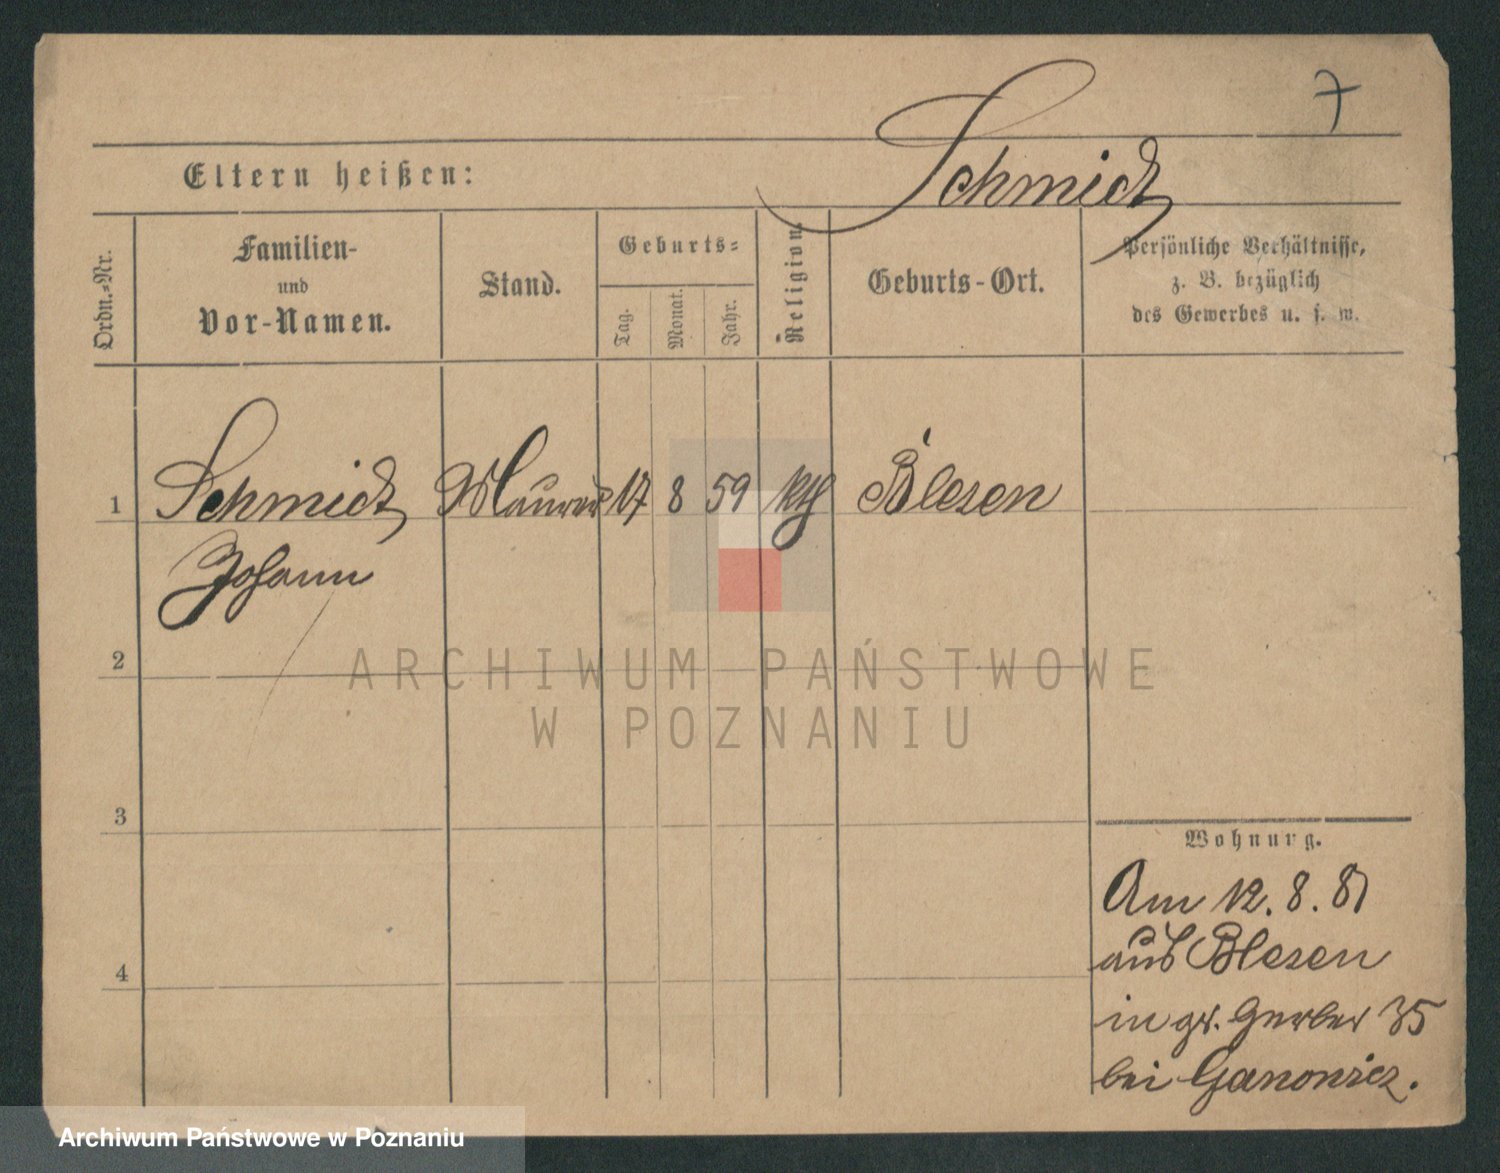 7
Schmidt
Eltern heißen:
Ordn.-Nr.
Familien-
und
Vor-Namen.
Stand.
Geburts-
Tag.
Monat.
Jahr.
Religion.
Geburts-Ort.
Persönliche Verhältnisse,
z. B. bezüglich
des Gewerbes u. s. w.
1 Schmidt Maurer 17 8 59 kth Blesen
Johann
2
3
4
Wohnung.
Am 12. 8. 81
aus Blesen
in gr. Gerber 35
bei Ganowicz.
ARCHIWUM PAŃSTWOWE
W POZNANIU
Archiwum Państwowe w Poznaniu